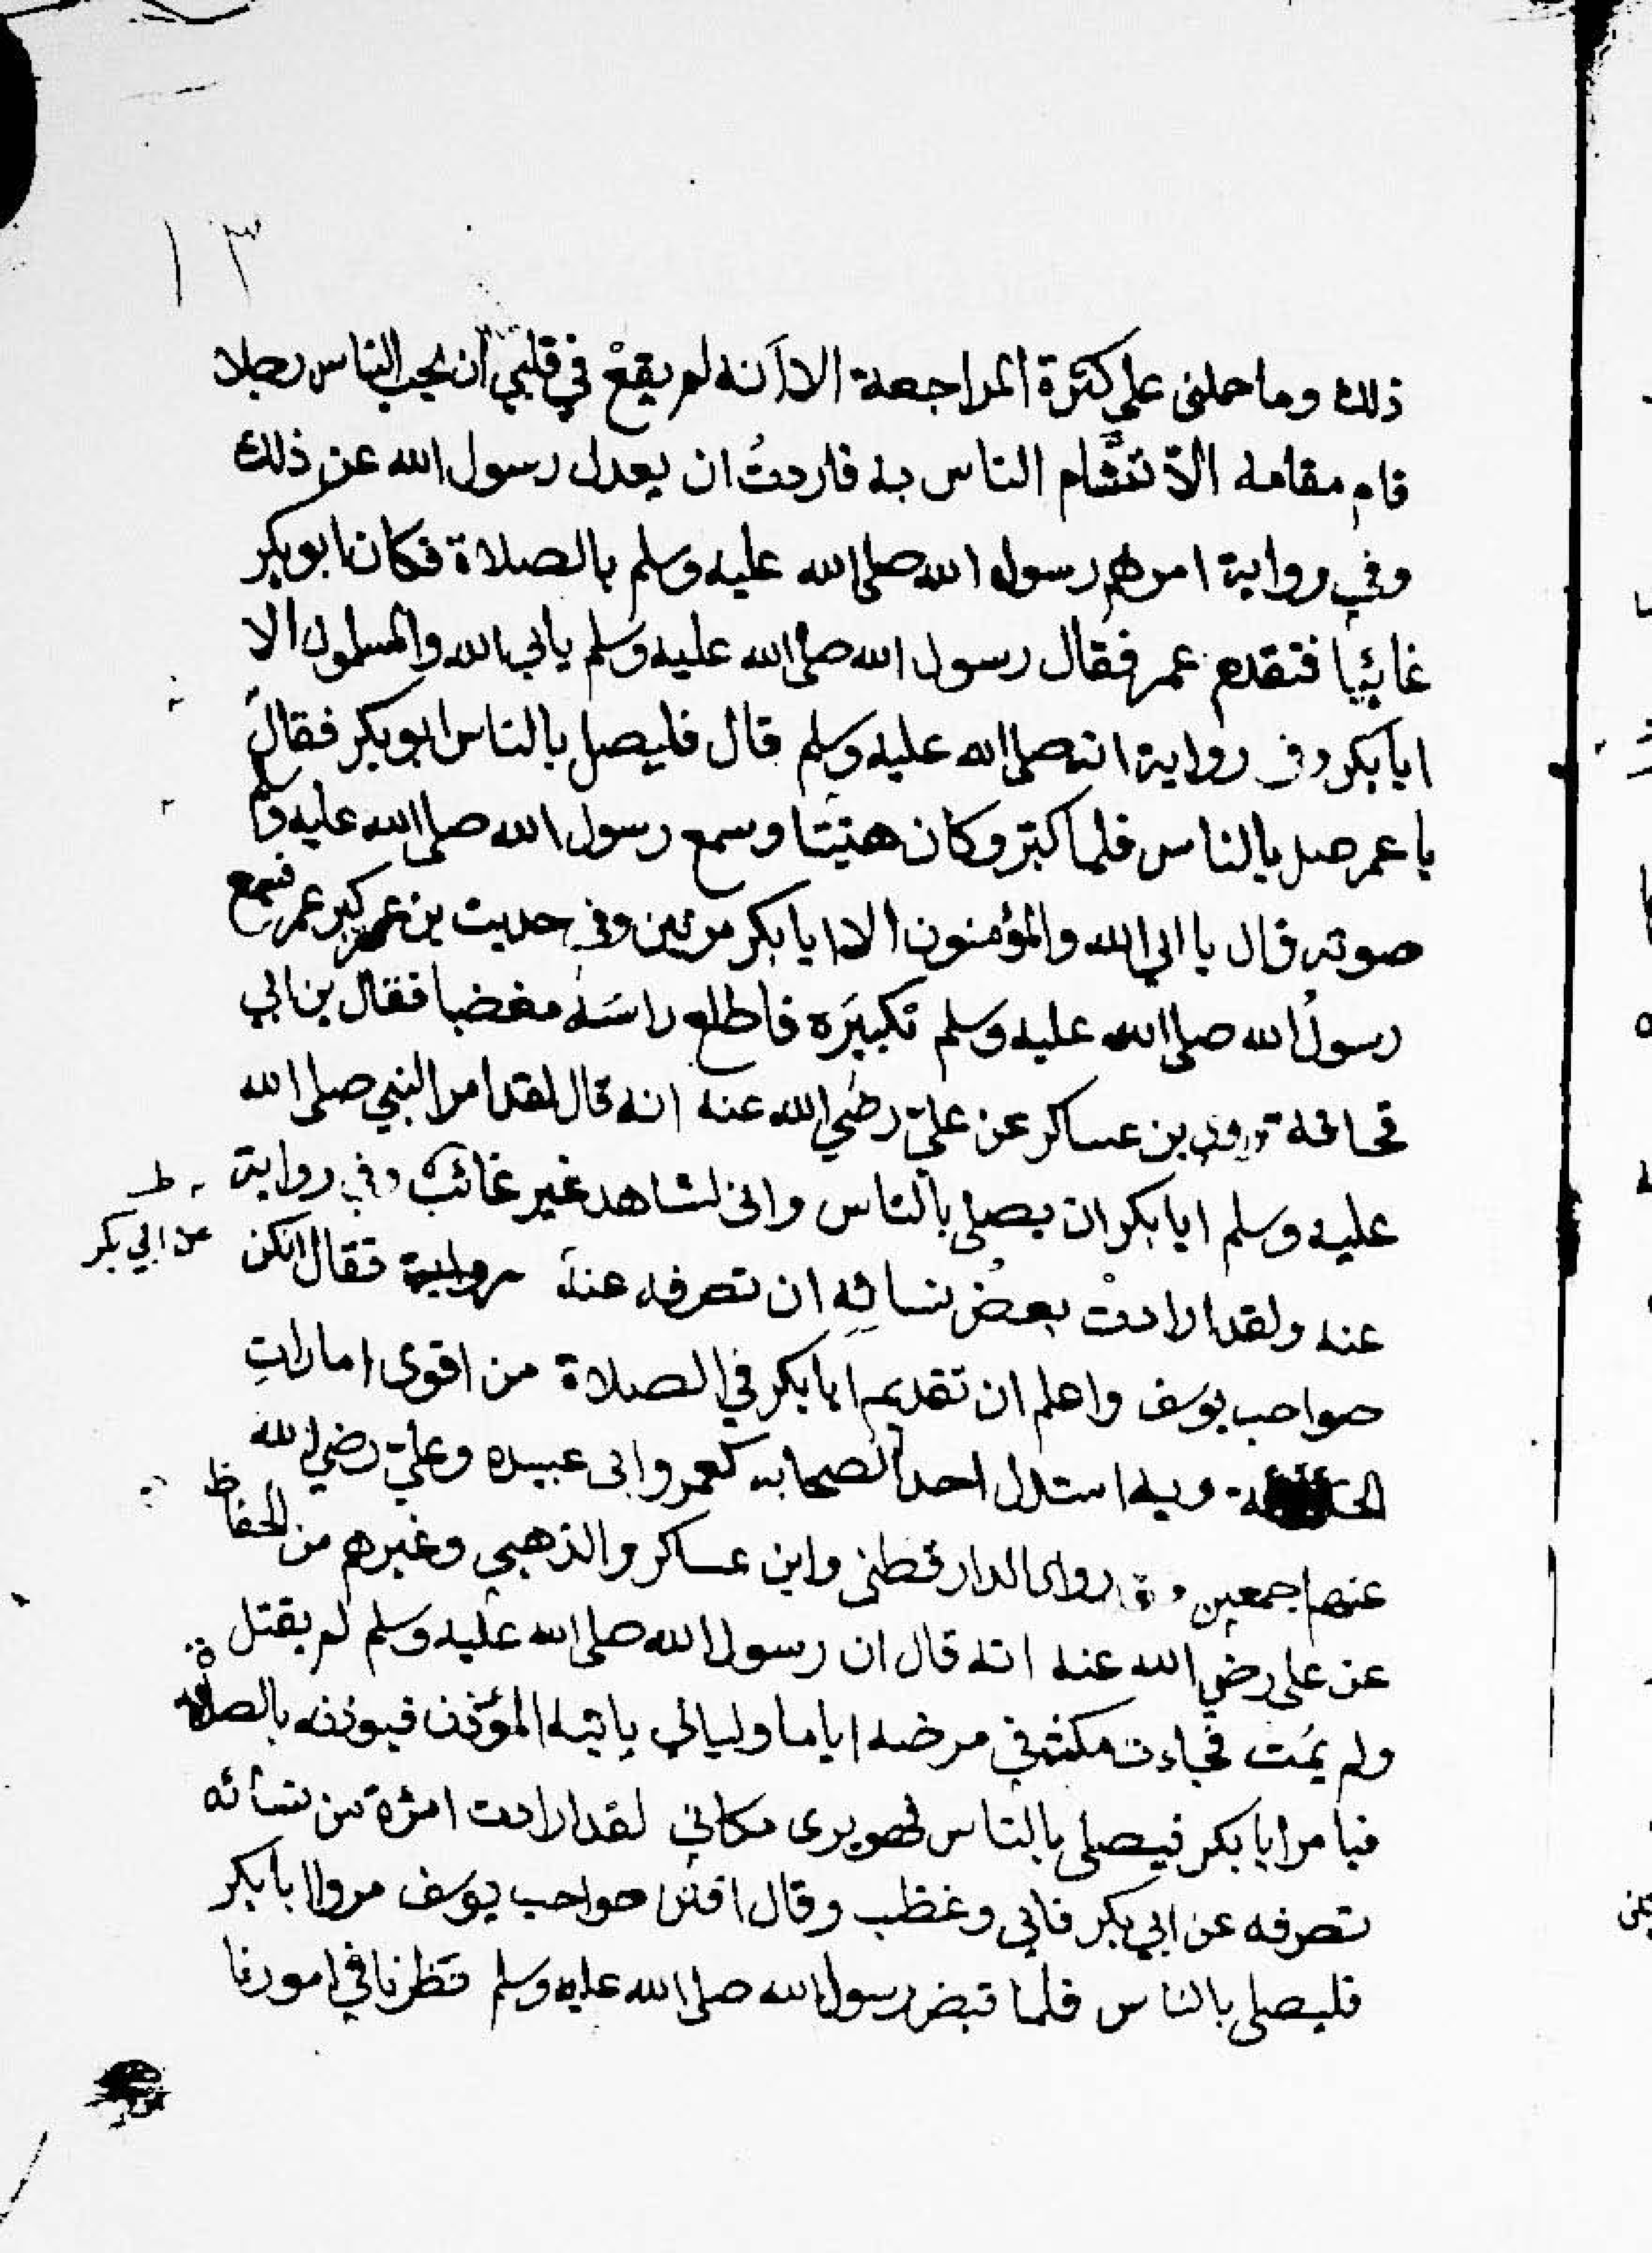 ١٣
ذلك وما حملني على كثرة المراجعة الا أنه لم يقعْ في قلبي أن يحب الناس رجلا
قام مقامه الاّ تشّام الناس به فاردتُ ان يعدل رسول الله عن ذلك
وفي رواية امرهم رسول الله صلى الله عليه وسلم بالصلاة فكان ابو بكر
غائبا فتقدم عمر فقال رسول الله صلى الله عليه وسلم يابي الله والمسلمون الا
ابا بكر وفي رواية انه صلى الله عليه وسلم قال فليصل بالناس ابو بكر فقال
يا عمر صل بالناس فلما كبّر وكان صيتا وسمع رسول الله صلى الله عليه وسلم
صوته قال يا ابي الله والمؤمنون الا ابا بكر مرتين وفي حديث بن عمر كبر عمر فسمع
رسولُ الله صلى الله عليه وسلم تكبيرَه فاطلع راسَه مغضبا فقال بن ابي
قحافة وروى بن عساكر عن عليّ رضي الله عنه انه قال لقد امر النبي صلى الله
عليه وسلم ابا بكر ان يصلي بالناس واني لشاهد غير غائب وفي رواية
عنه ولقد ارادتْ بعضُ نسائِه ان تصرفه عنه فقال انكن
عن ابي بكر
صواحب يوسف واعلم ان تقديم ابا بكر في الصلاة من اقوى اماراتِ
وبه استدل احد الصحابه كعمر وابى عبيده وعليّ رضي الله
عنهم اجمعين روى الدارقطني وابن عساكر والذهبي وغيرهم من الحفاظ
عن على رضي الله عنه انه قال ان رسول الله صلى الله عليه وسلم لم يقتل
ولم يمُت فجاءت مكث في مرضه اياما وليالي ياتيه المؤذن فيوذنه بالصلاة
فيا مر ابا بكر فيصلي بالناس فهو يرى مكاني لقد ارادت امرة من نسائه
تصرفه عن ابي بكر فابي وغظب وقال انتن صواحب يوسف مروا ابا بكر
فليصلي بالناس فلما قبض رسول الله صلى الله عليه وسلم نَظرنا في امورنا